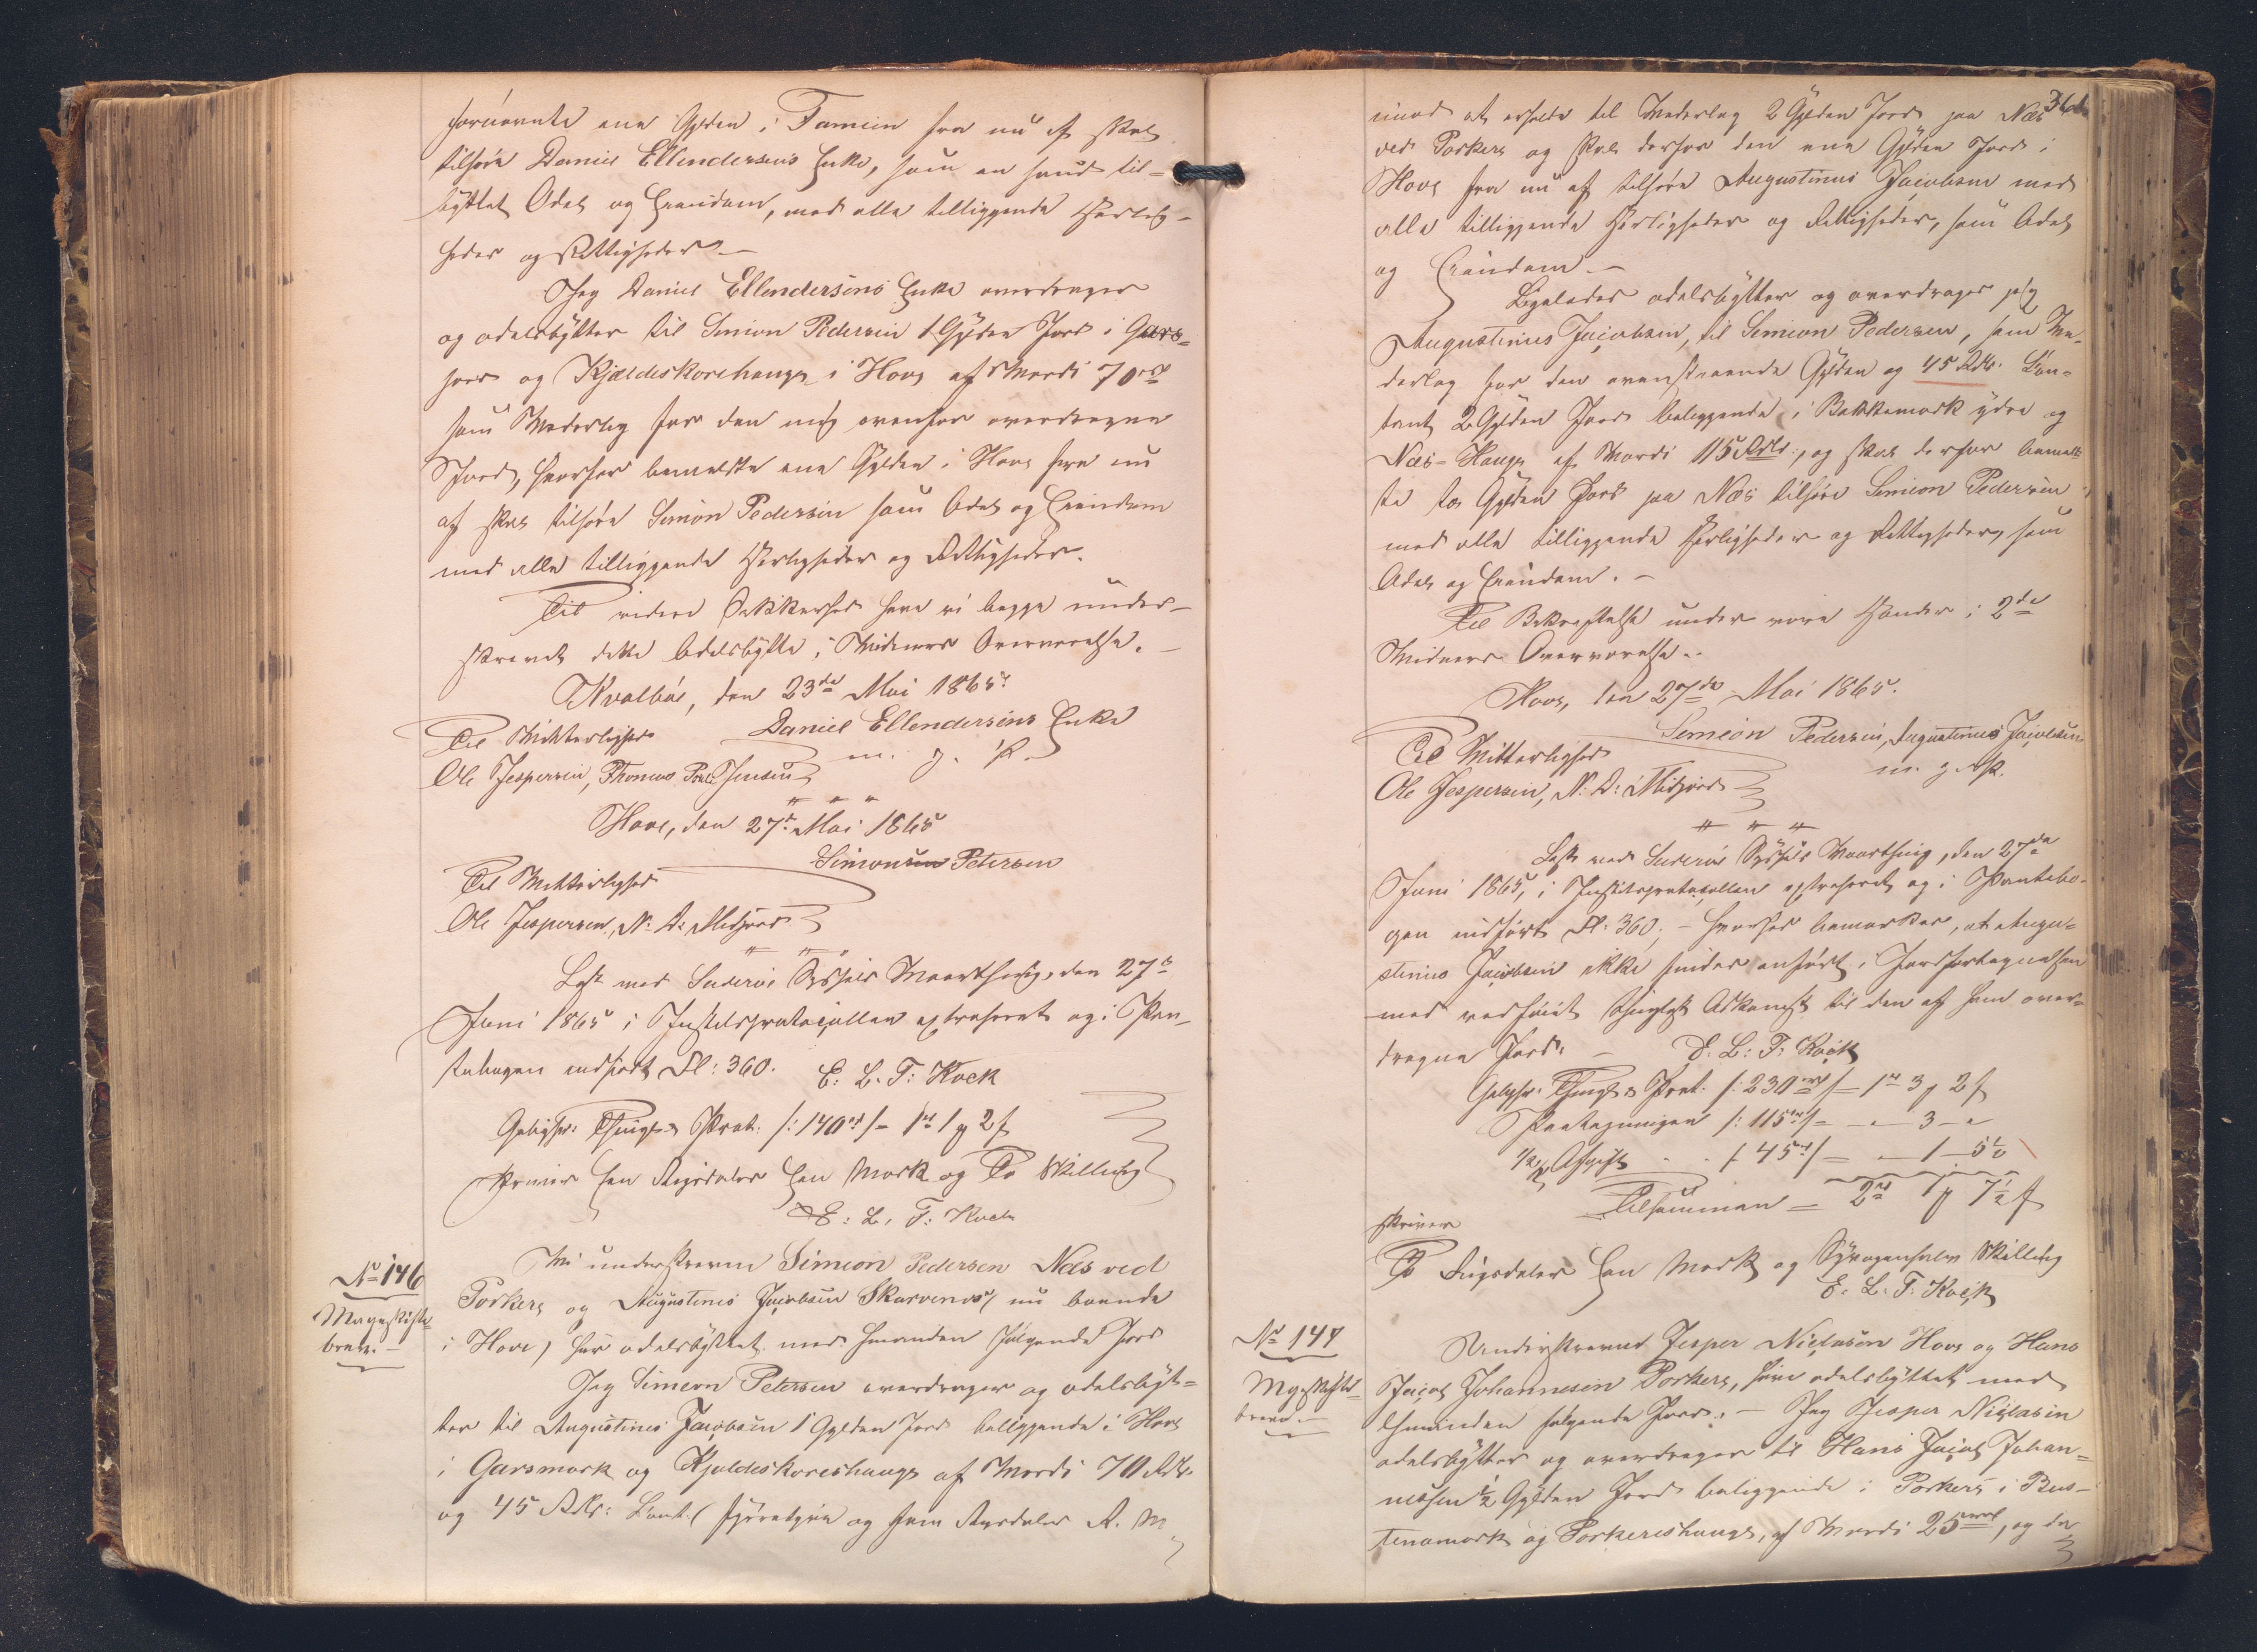 fornævnte ene Gylden i Famien fra nu af skal
tilhøre Daniel Ellendersens Enke, som en sand til-
byttet Odel og Eiendom, med alle tilliggende Herlig-
heder og Rettigheder.-
Jeg Daniel Ellendersens Enke overdrager
og odelsbytter til Simion Pedersen 1 Gylden Jord i Gars-
horn og Kjældeskorehauge i Hove af Værdi 70 rd
som Vederlag for den mig ovenfor overdragne
Jord, hvorfor bemeldte ene Gylden i Hove fra nu
af skal tilhøre Simon Pedersen som Odel og Eiendom
med alle tilliggende Herligheder og Rettigheder.
Til videre Sikkerhed have vi begge under-
skrevet dette Odelsbytte, i Vidners Overværelse.-
Kvalbøe, den 23de Mai 1865.
Til Vitterlighed Daniel Ellendersens Enke
Ole Jespersen, Thomas Poul Jensen m. f. P.
Hove, den 27d: Mai 1865
Simonsen Petersen
Til Vitterlighed
Ole Jespersen, N: D: Midjord
Læst ved Suderøe Syssels Vaarthing, den 27d
Juni 1865 i Justitsprotocollen extraheret og i Pan-
tebogen indført Fol: 360. E: L: F: Kock
Gebyhr: Thingl. & Prot: /:140 rd/ = 1 rd 1 ℳ 2 ß
skriver Een Rigsdaler Een Mark og To Skilling
E: L: F: Kock
No 146
Mageskifte-
brev.-
Vi underskrevne Simeon Pedersen Næs ved
Porkere og Augustinus Jacobsen Skarvenes (nu boende
i Hove) har odelsbyttet med hinanden følgende Jord
Jeg Simeon Petersen overdrager og odelsbyt-
ter til Augustinus Jacobsen 1 Gylden Jord beliggende i Hove
i Garsmark og Kjældeskoreshauge af Værdi 70 Rdlr.
og 45 Rdlr: Cont. (fyrretyve og fem Rigsdaler R. M
imod at erholde til Vederlag 2 Gylden Jord paa Næs
ved Porkere og skal derfor den ene Gylden Jord i
Hove fra nu af tilhøre Augustinus Jacobsen med
alle tilliggende Herligheder og Rettigheder, som Odel
og Eiendom.-
Ligeledes odelsbytter og overdrager jeg
Augustinus Jacobsen, til Simeon Pedersen, som Ve-
derlag for den ovenstaaende Gylden og 45 Rdlr. Con-
tant 2 Gylden Jord beliggende i Bakkemark ydre og
Næs-Hauge af Værdi 115 Rdlr., og skal derfor bemeld-
te to Gylden Jord paa Næs tilhøre Simeon Pedersen
med alle tilliggende Herligheder og Rettigheder, som
Odel og Eiendom.-
Til Bekræftelse under vore Hænder i 2de
Vidners Overværelse.
Hove, den 27de Mai 1865.
Simeon Pedersen, Augustinus Jacobsen
Til Vitterlighed m. f. P.
Ole Jespersen, N: D: Midjord
Læst ved Suderøe Syssels Vaarthing, den 27de
Juni 1865, i Justitsprotocollen extraheret og i Pantebo-
gen indført Fol: 360; - hvorfor bemærkes, at Augu-
stinus Jacobsen ikke findes anført i Jordfortegnelsen
med ved føiet thinglyst Adkomst til den af ham over-
dragne Jord. - E: L: F: Kock
Gebyhr. Thingl. & Prot. /:230 rd/ = 1 rd 3 ℳ 2 ß
Paategningen /:115 rd/ = - " - 3 - "
1/2 % Afgift - - /:45 rd/ = - " - 1 - 5 1/2
Tilsammen = 2 rd 1 ℳ 7 1/2 ß
skriver
To Rigsdaler Een Mark og Syvogenhalv Skilling
E: L: F: Kock
No 147
Mageskifte-
brev.-
Underskrevne Jesper Niclasen Hove og Hans
Jacob Johannesen Porkere, have odelsbyttet med
hinanden følgende Jord. - Jeg Jesper Niclasen
odelsbytter og overdrager til Hans Jacob Johan-
nessen 1/2 Gylden Jord beliggende i Porkere i Bus-
tenamark og Porkereshauge, af Værdi 25 rd, og de